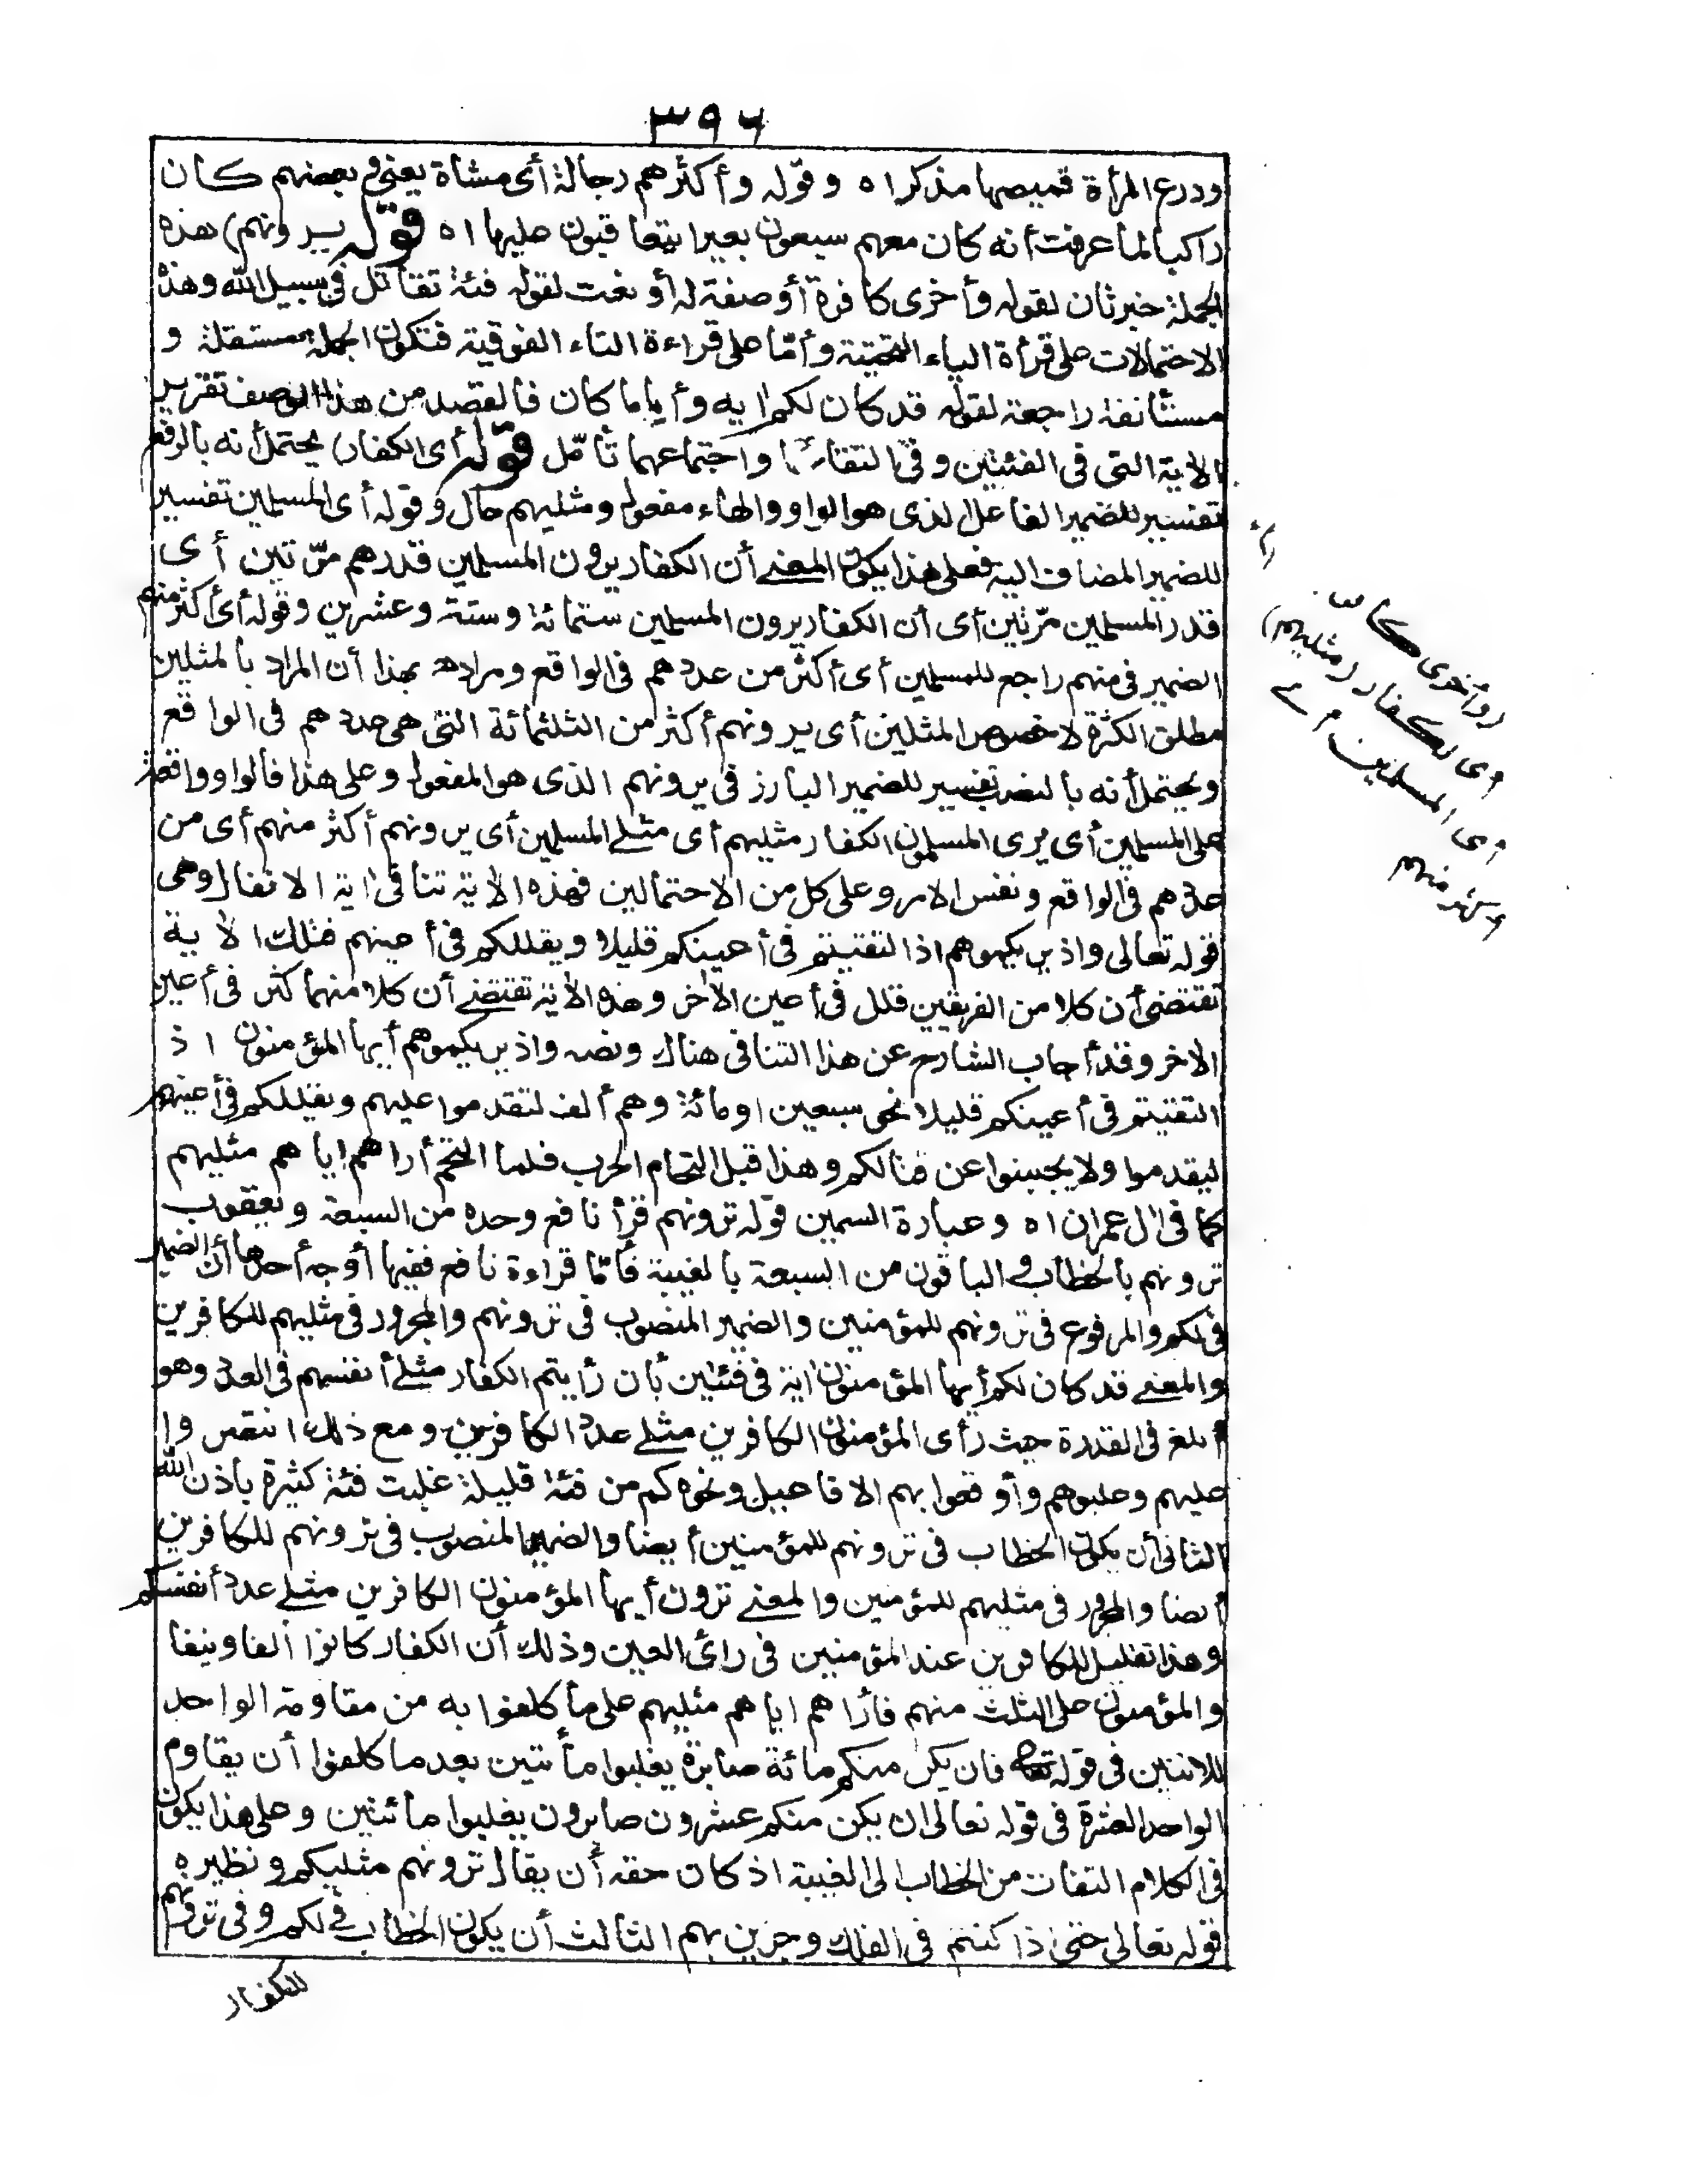 ٣٩٦
ودرع المرأة قميصها مذكر اه وقوله وأكثرهم رجالة أى مشاة يعنى وبعضهم كان
راكبا لما عرفت أنه كان معهم سبعون بعيرا يتعاقبون عليها اه قوله يرونهم) هذه
الجملة خبر ثان لقوله وأخرى كافرة أو صفة له أو نعت لقوله فئة تقاتل فى سبيل الله وهذه
الاحتمالات على قرأة الياء التحتية وأمّا على قراءة التاء الفوقية فتكون الجملة مستقلة و
مستأنفة راجعة لقوله قد كان لكم اية وأياما كان فالقصد من هذا الوصف تقرير
الاية التى فى الفئتين وفى التقائهما واجتماعهما تأمّل قوله أى الكفار) يحتمل أنه بالرفع
تفسير للضمير الفاعل الذى هو الواو والهاء مفعول ومثليهم حال وقوله أى المسلمين تفسير
للضمير المضاف اليه فعلى هذا يكون المعنى أن الكفار يرون المسلمين قدرهم مرّتين أى
قدر المسلمين مرّتين أى أن الكفار يرون المسلمين ستمائة وستة وعشرين وقوله أى أكثر منهم
الضمير فى منهم راجع للمسلمين أى أكثر من عددهم فى الواقع ومراده بهذا أن المراد بالمثلين
مطلق الكثرة لا خصوص المثلين أى يرونهم أكثر من الثلثمائة التى هى عددهم فى الواقع
ويحتمل أنه بالنصب تفسير للضمير البارز فى يرونهم الذى هو المفعول وعلى هذا فالواو واقعة
على المسلمين أى يرى المسلمون الكفار مثليهم أى مثلى المسلمين أى يرونهم أكثر منهم أى من
عددهم فى الواقع ونفس الامر وعلى كل من الاحتمالين فهذه الاية تنافى اية الانفال وهى
قوله تعالى واذ يريكموهم اذ التقيتم فى أعينكم قليلا ويقللكم فى أعينهم فتلك الاية
تقتضى أن كلا من الفريقين قلل فى أعين الاخر وهذه الاية تقتضى أن كلا منهما كثر فى أعين
الاخر وقد أجاب الشارح عن هذا التنافى هناك ونصه واذ يريكموهم أيها المؤمنون اذ
التقيتم فى أعينكم قليلا نحو سبعين أو مائة وهم ألف لتقدموا عليهم ويقللكم فى أعينهم
ليقدموا ولا يجبنوا عن قتالكم وهذا قبل التحام الحرب فلما التحم أراهم اياهم مثليهم
كما فى ال عمران اه وعبارة السمين قوله ترونهم قرأ نافع وحده من السبعة ويعقوب
ترونهم بالخطاب والباقون من السبعة بالغيبة فأمّا قراءة نافع ففيها أوجه أحدها أن الضمير
فى لكم والمرفوع فى ترونهم للمؤمنين والضمير المنصوب فى ترونهم والمجرور فى مثليهم للكافرين
والمعنى قد كان لكم أيها المؤمنون اية فى فئتين بأن رأيتم الكفار مثلى أنفسهم فى العدد وهو
أبلغ فى القدرة حيث رأى المؤمنون الكافرين مثلى عدد الكافرين ومع ذلك انتصروا
عليهم وغلبوهم وأوقعوا بهم الافاعيل ونحوه كم من فئة قليلة غلبت فئة كثيرة باذن الله
الثانى أن يكون الخطاب فى ترونهم للمؤمنين أيضا والضمير المنصوب فى ترونهم للكافرين
أيضا والمجرور فى مثليهم للمؤمنين والمعنى ترون أيها المؤمنون الكافرين مثلى عدد أنفسكم
وهذا تقليل للكافرين عند المؤمنين فى رائى العين وذلك أن الكفار كانوا ألفا ونيفا
والمؤمنون على الثلث منهم فأراهم اياهم مثليهم على ما كلفوا به من مقاومة الواحد
للاثنين فى قوله تعالى فان يكن منكم مائة صابرة يغلبوا مأتين بعدما كلفوا أن يقاوم
الواحد العشرة فى قوله تعالى ان يكن منكم عشرون صابرون يغلبوا مائتين وعلى هذا يكون
فى الكلام التفات من الخطاب الى الغيبة اذ كان حقه أن يقال ترونهم مثليكم ونظيره
قوله تعالى حتى اذا كنتم فى الفلك وجرين بهم الثالث أن يكون الخطاب فى لكم وفى ترونهم
للكفار
(وأخرى كا
أى الكفار (مثليهم)
أى المسلمين
أكثر منهم